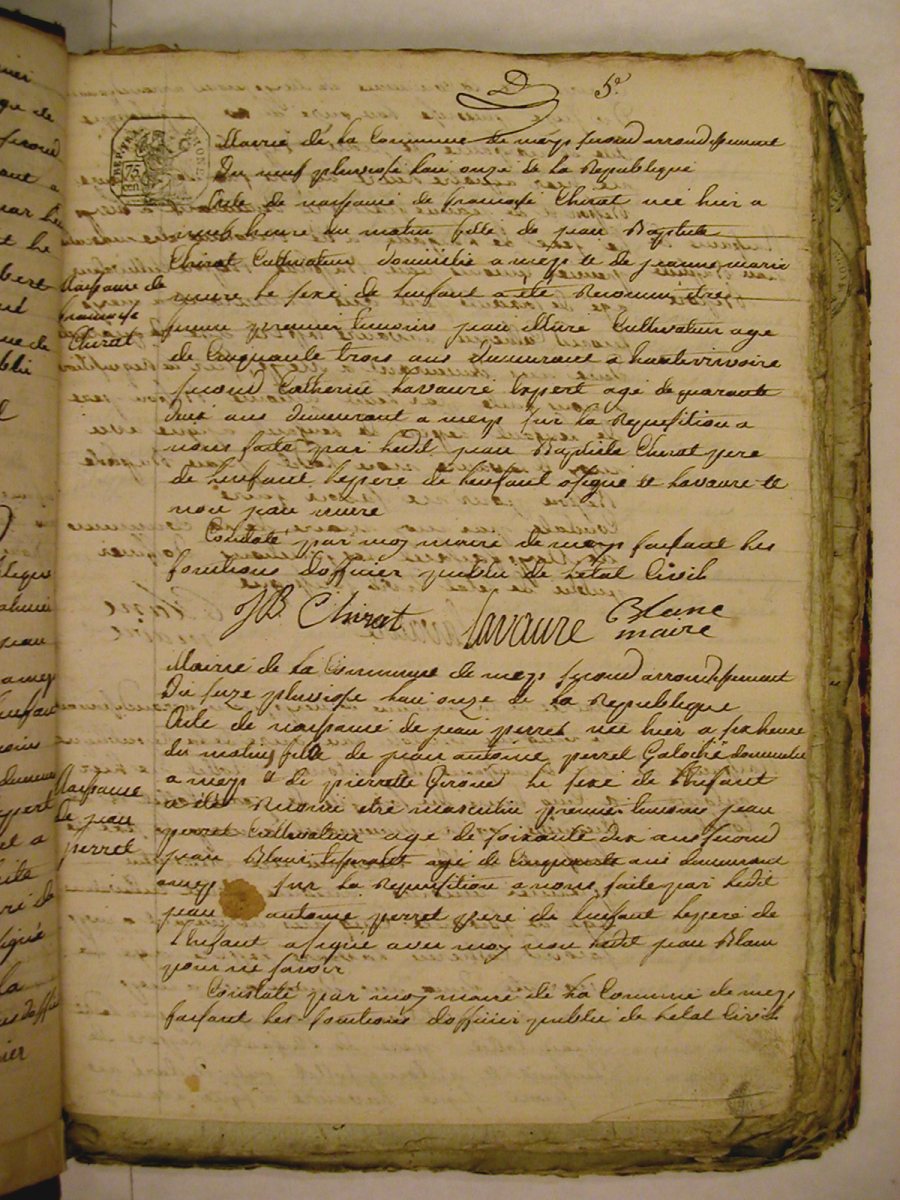 5e
Mairie de la Commune de meys second arrondissement
Du neuf pluviose lan onze de la Republique
Acte de naissance de francoise Chirat née hier a
neuf heure du matin fille de jean Baptiste
Chirat Cultivateur domicilié a meys et de jeanne marie
mure le sexe de lenfant a été Reconnu etre
premier temoins jean Mure Cultivateur age
de Cinquante trois ans demeurant a hauterivoire
second Catherin Lavaure Expert agé de quarante
ans demeurant a meys sur la Requisition a
nous faite par ledit jean Baptiste Chirat pere
de lenfant le pere de lenfant a signé et Lavaure et
non jean mure
Constaté par moy maire de meys faisant les
fonctions dofficier public de letat Civil
Naissance de
francoise
Chirat
JB Chirat Lavaure Blanc
maire
Mairie de la Commune de meys second arrondissement
Du seize pluviose lan onze de la Republique
Acte de naissance de jean perret née hier a six heure
du matin fils de jean antoine perret Galoché domicilié
a meys et de pierrette Giroud le sexe de lenfant
a été Reconnu etre masculin premier temoins jean
perret Cultivateur age de soixante dix ans second
jean Blanc agé de Cinquante ans demeurant
a meys sur la Requisition a nous faite par ledit
jean antoine perret pere de lenfant le pere de
lenfant a signé avec moy non ledit jean Blanc
pour ne savoir
Constaté par moy maire de la Commune de meys
faisant les fonctions dofficier public de letat Civil
Naissance
de jean
perret